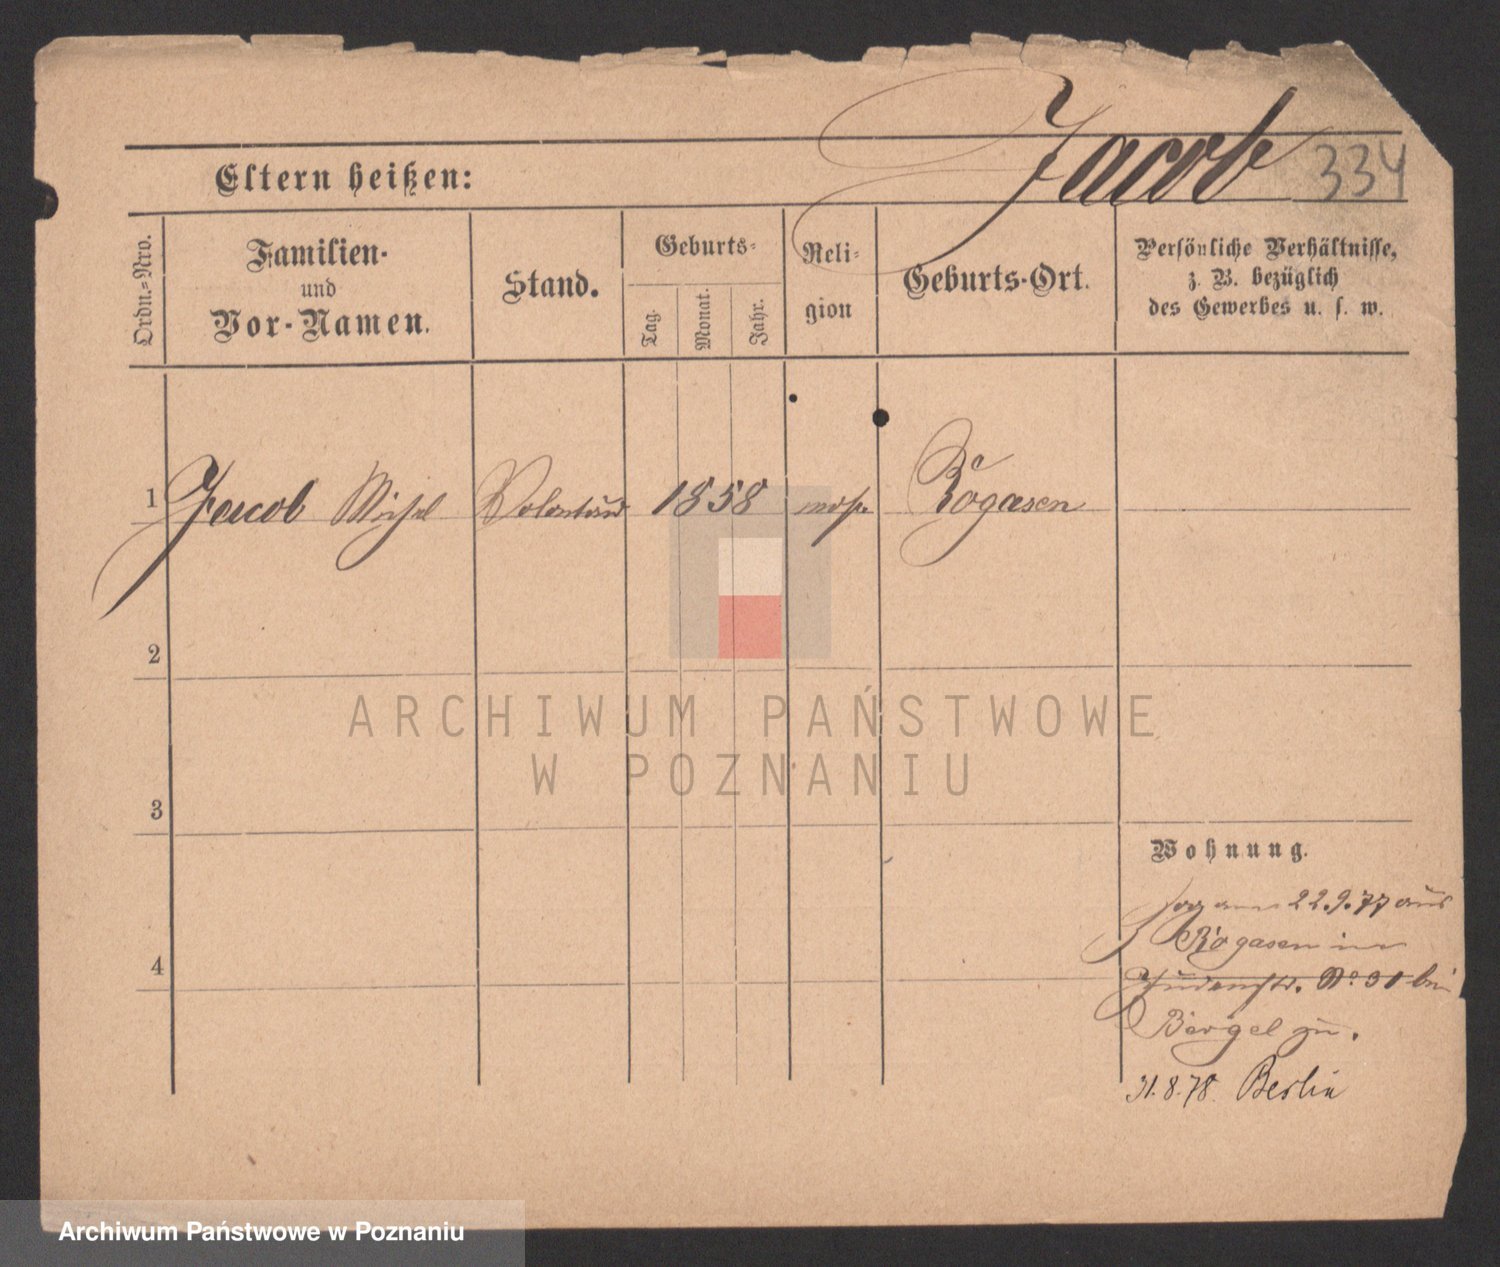 Jacob 334
Eltern heißen:
Ordn.=Nro.
Familien-
und
Vor-Namen.
Stand.
Geburts=
Tag.
Monat.
Jahr.
Reli=
gion
Geburts-Ort.
Persönliche Verhältnisse,
z. B. bezüglich
des Gewerbes u. s. w.
1 Jacob Michel Volontär 1858 mos. Rogasen
2
3
4
Wohnung.
Zog am 22.9.77 aus
Rogasen in
Judenstr. No 31 bei
Bergel zu.
31.8.78. Berlin
ARCHIWUM PAŃSTWOWE
W POZNANIU
Archiwum Państwowe w Poznaniu